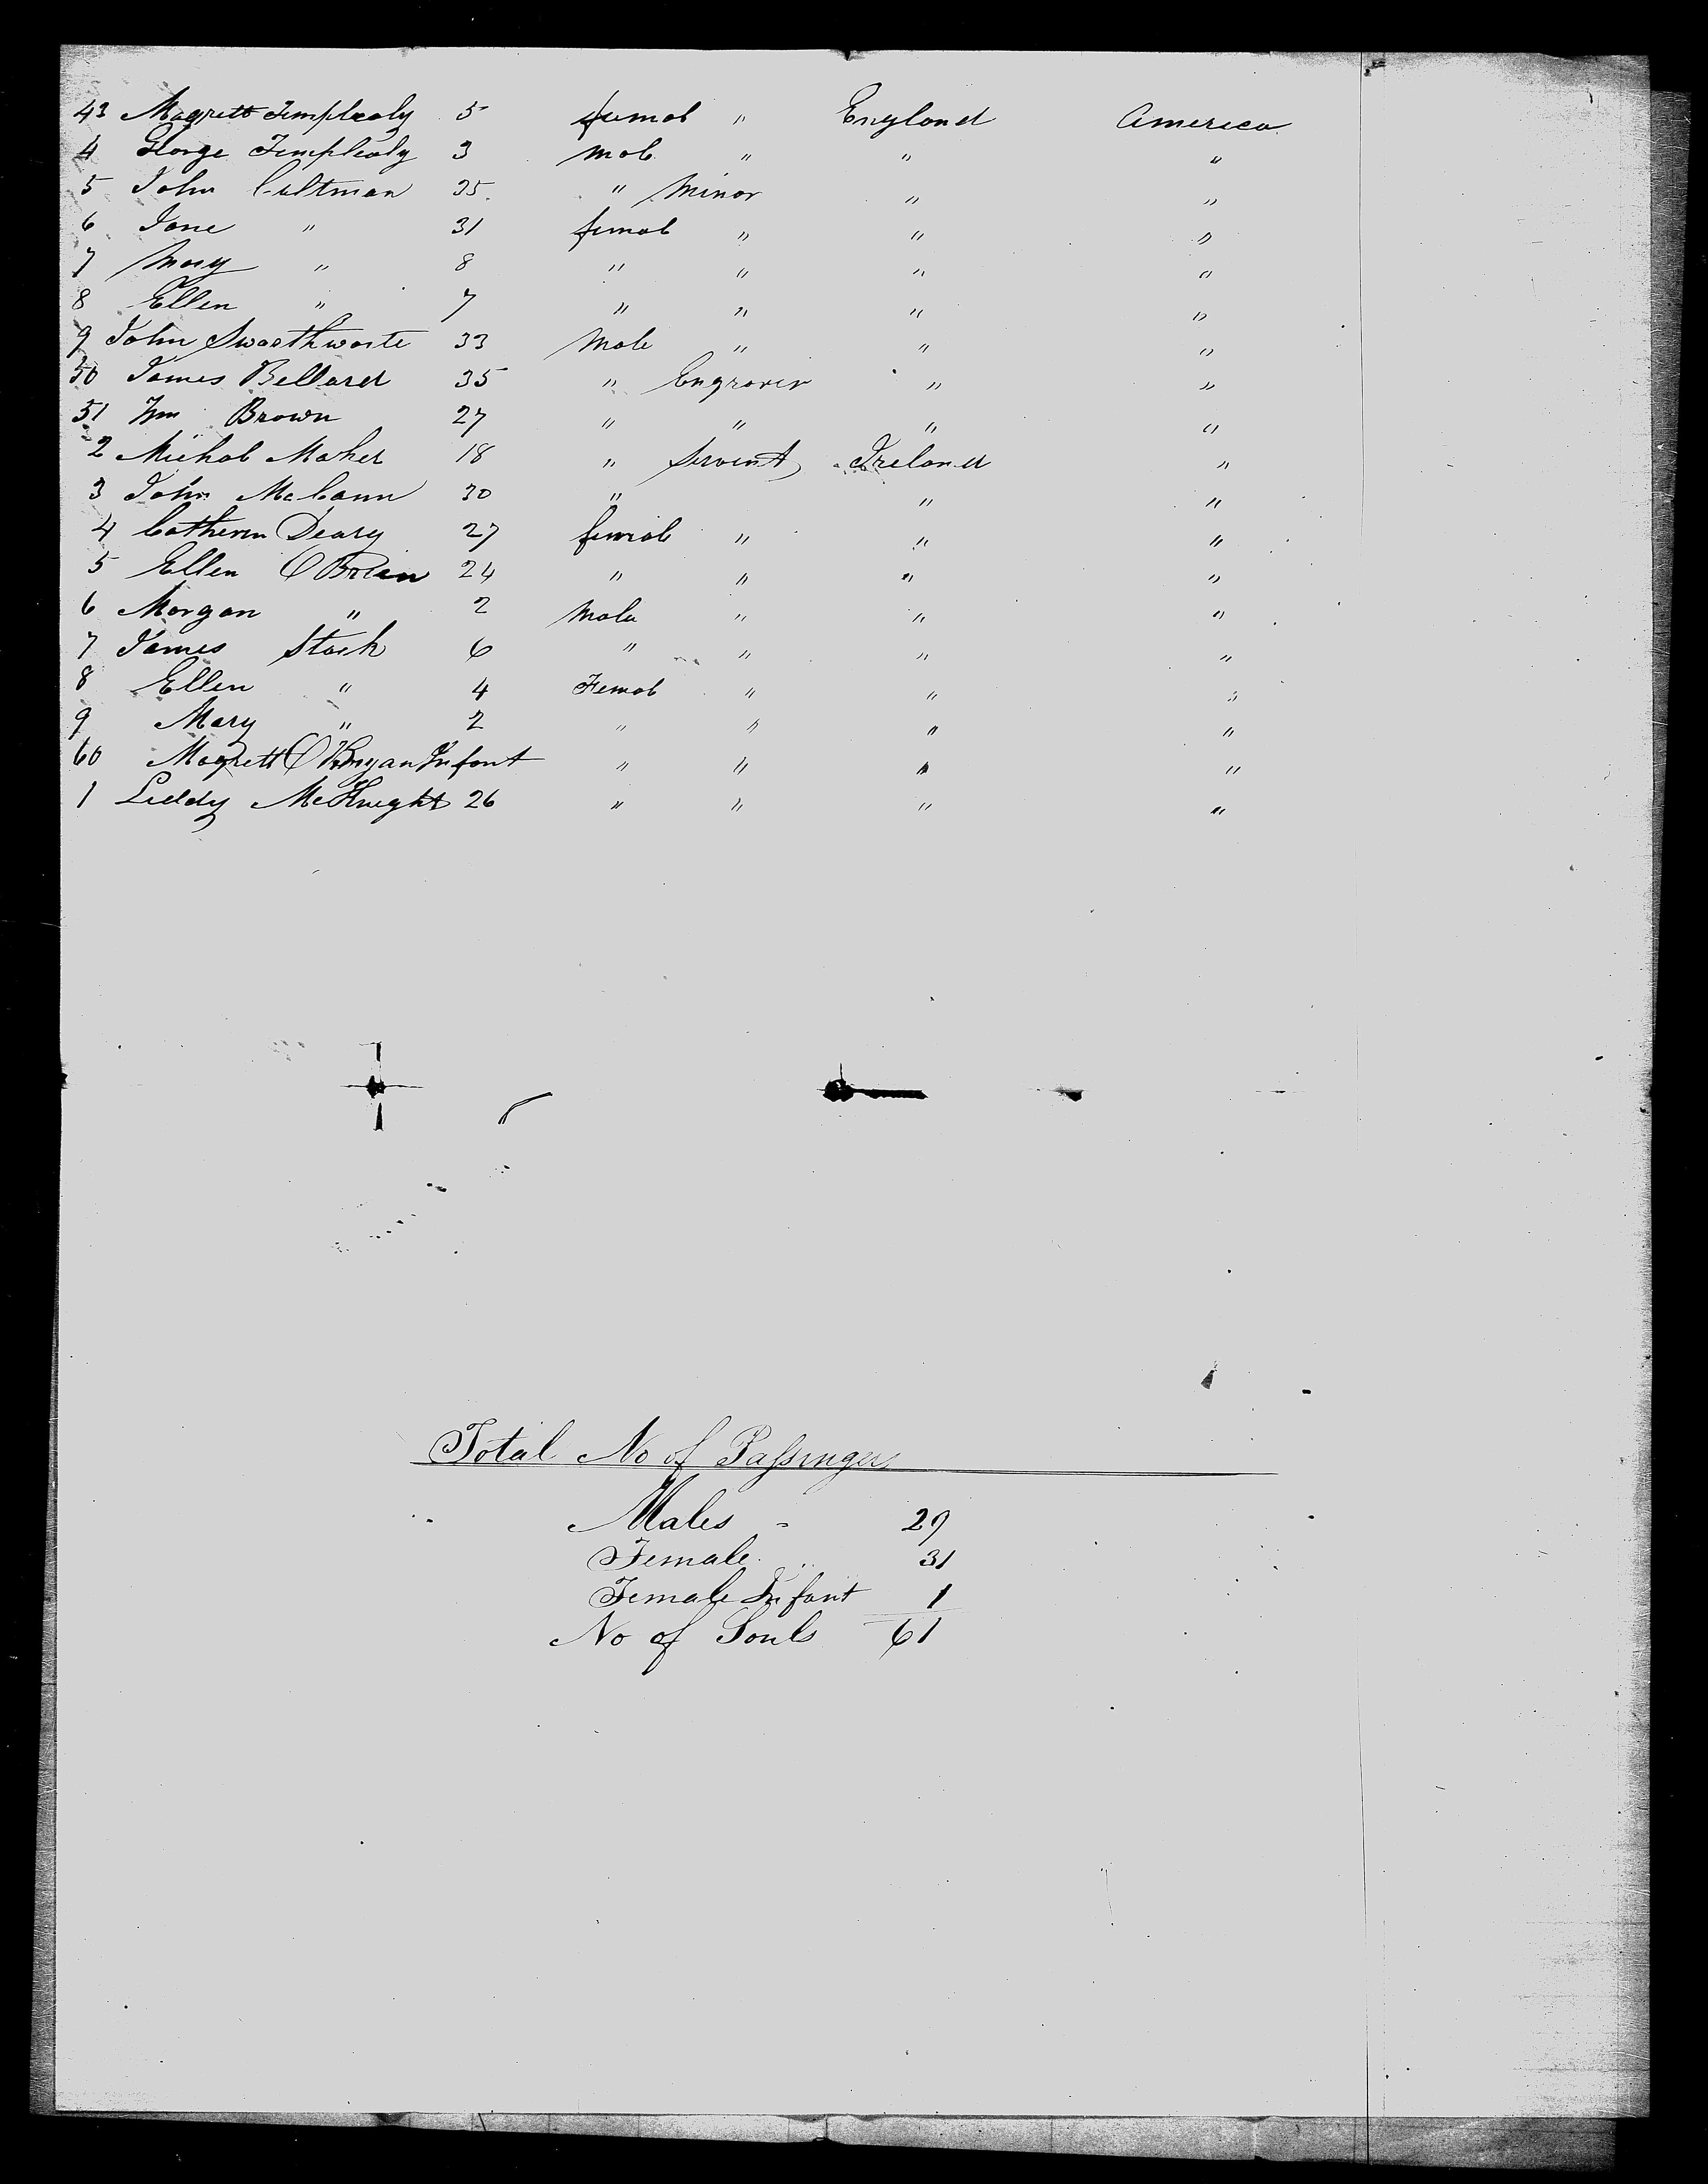 43 Magrett Templealy 5 femal " England America
4 George Templealy 3 Mal " " "
5 John Cultman 35 " Minor " "
6 Jane " 31 femal " " "
7 Mary " 8 " " " "
8 Ellen " 7 " " " "
9 John Swarthwaite 33 Male " " "
50 James Bellard 35 " Engraver " "
51 Wm Brown 27 " " " "
2 Michal Maher 18 " Servent Ireland "
3 John McCann 30 " " "
4 Catheren Deary 27 femal " " "
5 Ellen O Brien 24 " " " "
6 Morgan " 2 Male " " "
7 James Stack 6 " " " "
8 Ellen " 4 Femal " " "
9 Mary " 2 " " " "
60 Magrett Infant " " " "
1 Liddy McKnight 26 " " " "
Total No of Passinger
Males - 29
Female 31
Female Infant 1
No of Souls 61